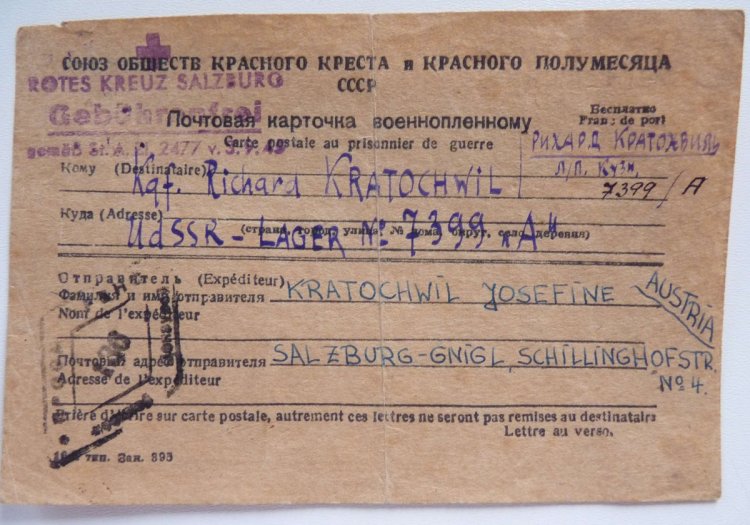 СОЮЗ ОБЩЕСТВ КРАСНОГО КРЕСТА и КРАСНОГО ПОЛУМЕСЯЦА
СССР
ROTES KREUZ SALZBURG
Gebührenfrei
gemäß St. A. Zl. 2477 v. 5. 9. 45
Бесплатно
Franc de port
Почтовая карточка военнопленному
Carte postale au prisonnier de guerre
РИХАРД КРАТОХВИЛЬ
Л/П.
7399/А
Кому (Destinataire) Kgf. Richard KRATOCHWIL
Куда (Adresse) UdSSR - LAGER No 7399 „A"
(страна, город, улица, № дома, округ, село, деревня)
Отправитель (Expéditeur)
Фамилия и имя отправителя KRATOCHWIL JOSEFINE
AUSTRIA
Nom de l'expéditeur
Почтовый адрес отправителя SALZBURG-GNIGL, SCHILLINGHOFSTR.
No 4.
Adresse de l'expéditeur
Prière d'écrire sur carte postale, autrement ces lettres ne seront pas remises au destinataire
Lettre au verso.
тип. Зак. 895